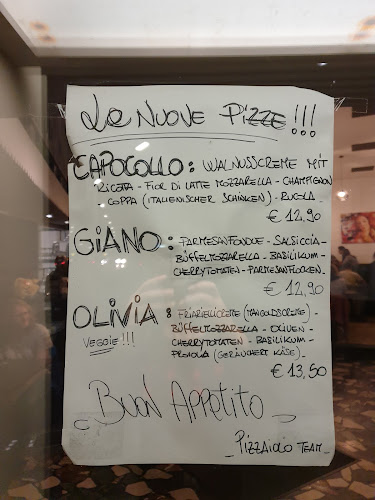 Le NUOVE PIZZE!!!
CAPOCOLLO: WALNUSSCREME MIT
RICOTTA - FIOR DI LATTE MOZZARELLA - CHAMPIGNON
- COPPA (ITALIENISCHER SCHINKEN) - RUCOLA -
€ 12,90
GIANO: PARMESANFONDUE - SALSICCIA -
BÜFFELMOZZARELLA - BASILIKUM -
CHERRYTOMATEN - PARMESANFLOCKEN -
€ 12,90
OLIVIA: FRIARIELLICREME (MANGOLDSCREME) -
VEGGIE!!! BÜFFELMOZZARELLA - OLIVEN -
CHERRYTOMATEN - BASILIKUM -
PROVOLA (GERÄUCHERT KÄSE).
€ 13,50
BUON APPETITO
- PIZZAIOLO TEAM -